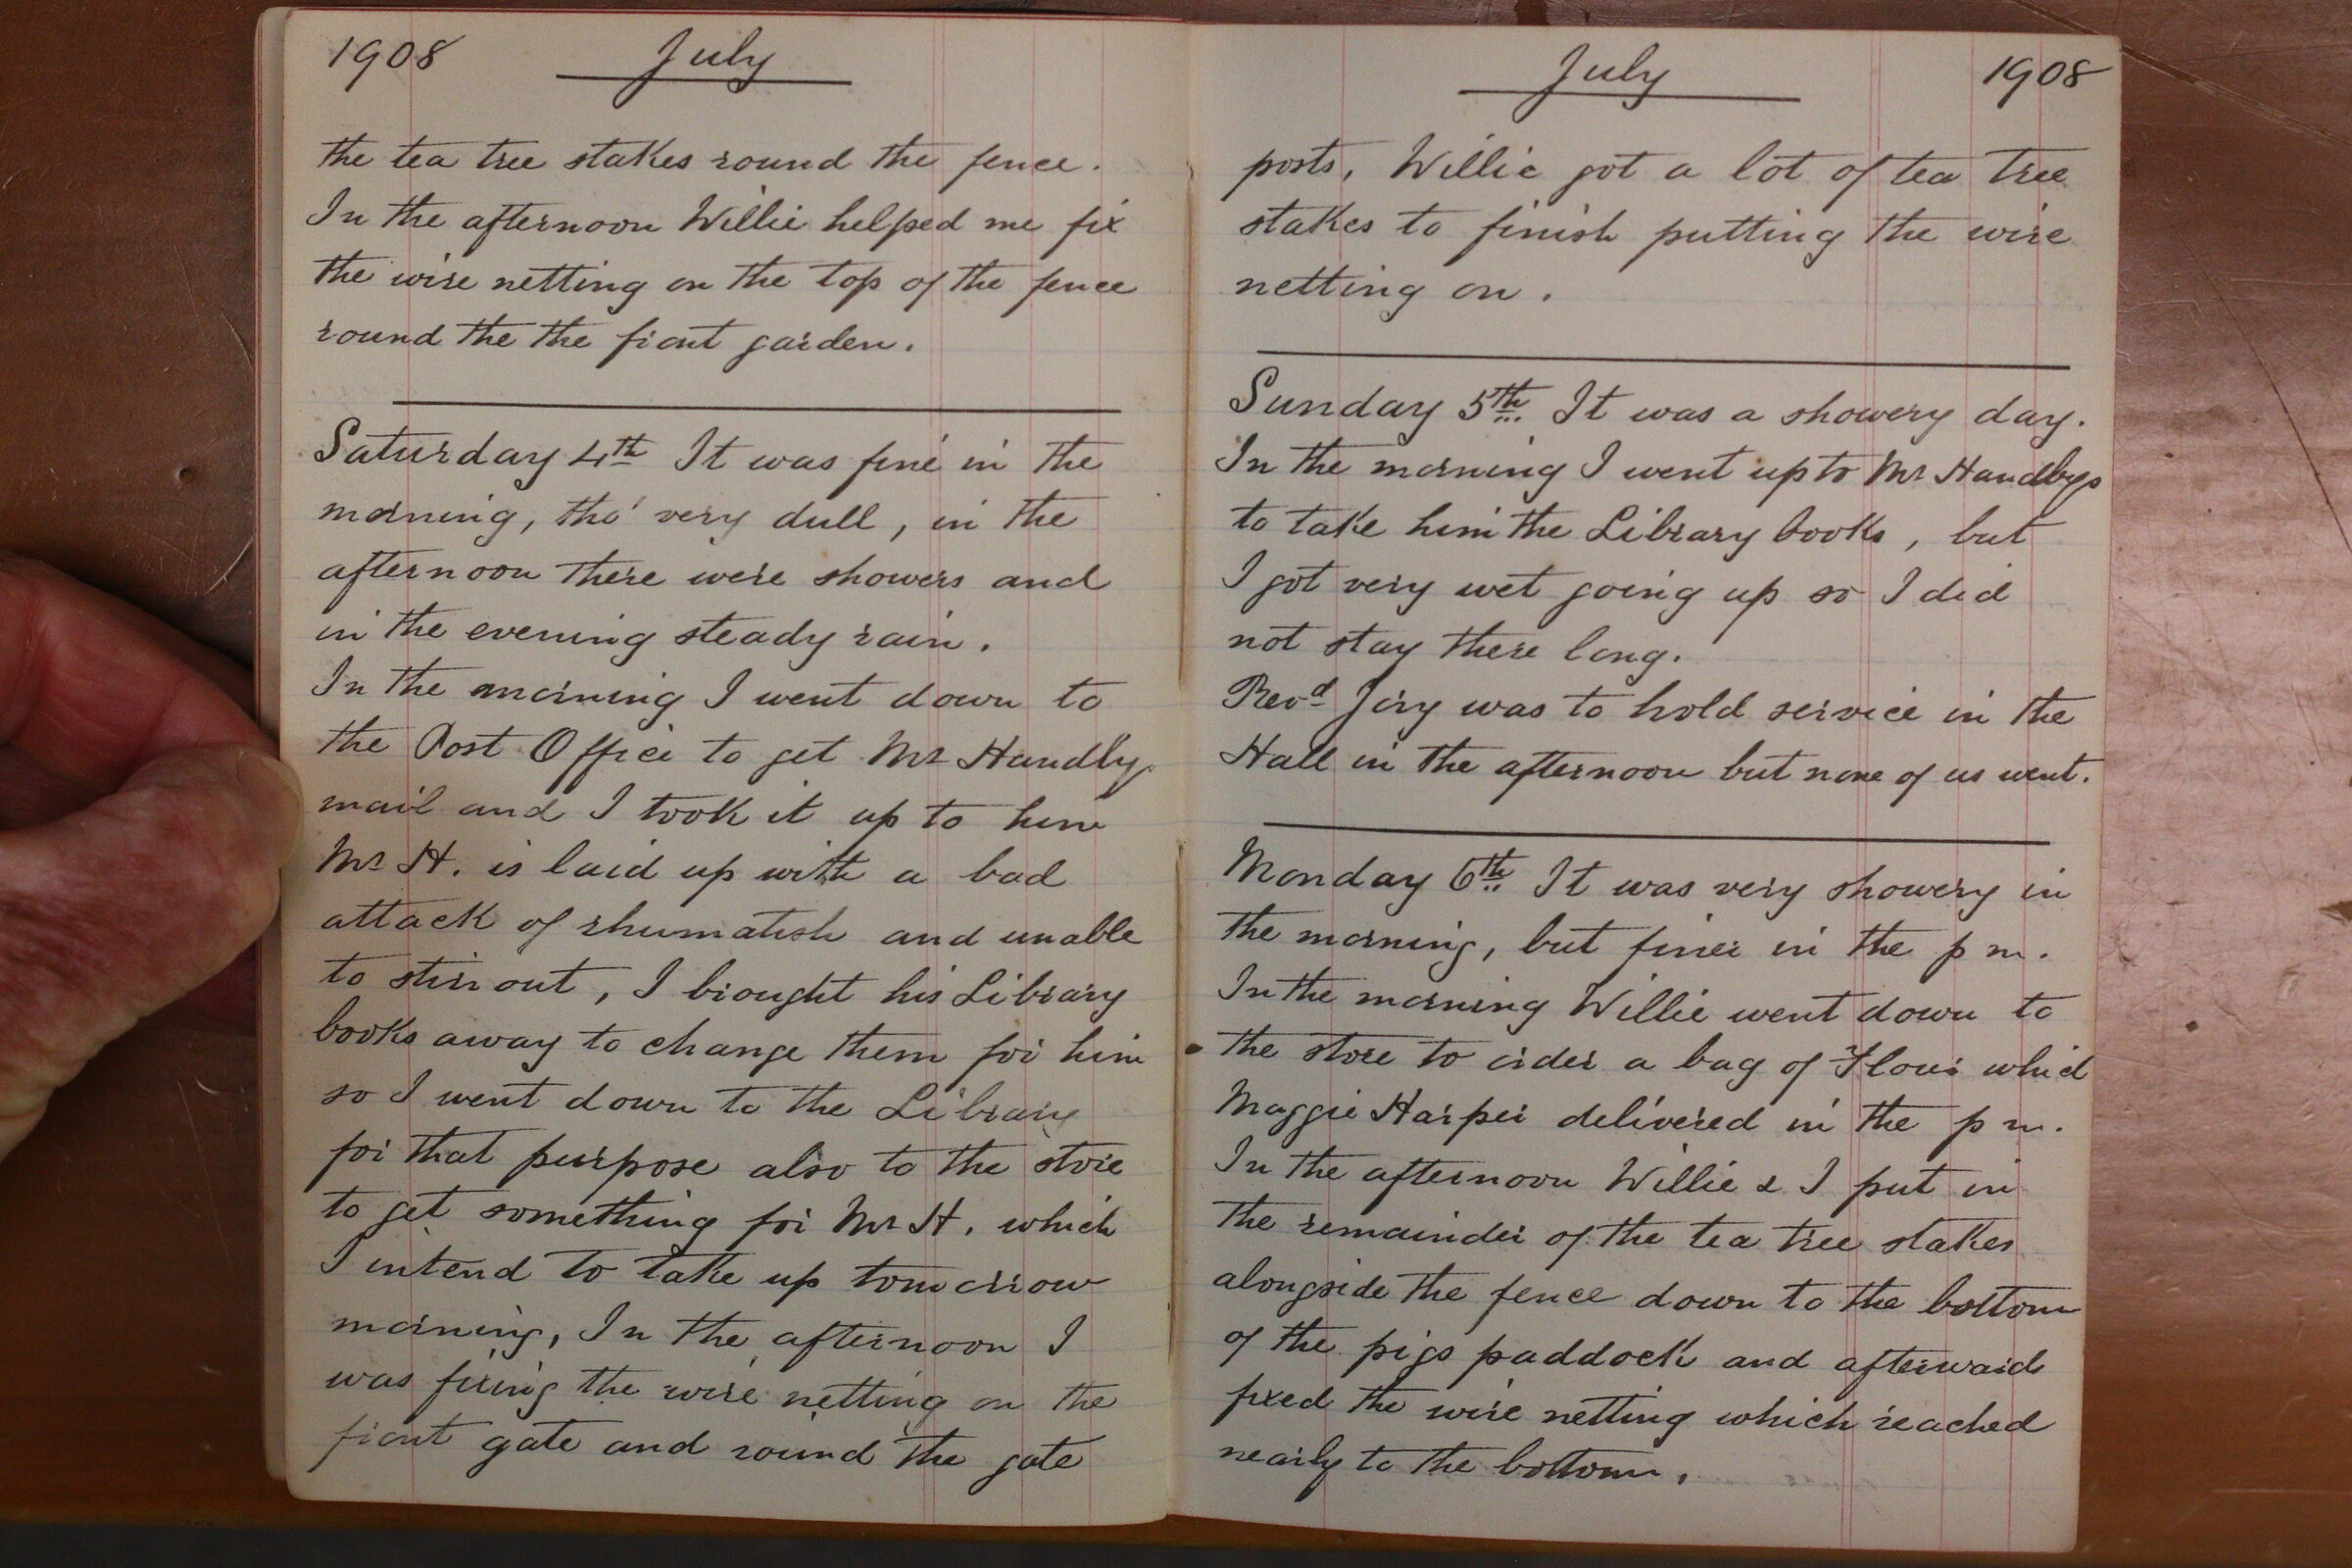 1908 July
the tea tree stakes round the fence.
In the afternoon Willie helped me fix
the wire netting on the top of the fence
round the the front garden.
Saturday 4th It was fine in the
morning, tho' very dull, in the
afternoon there were showers and
in the evening steady rain.
In the morning I went down to
the Post Office to get Mr Handby
mail and I took it up to him
Mr H. is laid up with a bad
attack of rhumatish and unable
to stir out, I brought his Library
books away to change them for him
so I went down to the Library
for that purpose also to the store
to get something for Mr H. which
I intend to take up tomorrow
morning, In the afternoon I
was fixing the wire netting on the
front gate and round the gate
July 1908
posts, Willie got a lot of tea tree
stakes to finish putting the wire
netting on.
Sunday 5th It was a showery day.
In the morning I went up to Mr Handbys
to take him the Library books, but
I got very wet going up so I did
not stay there long.
Revd Jory was to hold service in the
Hall in the afternoon but none of us went.
Monday 6th It was very showery in
the morning, but finer in the p m.
In the morning Willie went down to
the store to order a bag of Flour which
Maggie Harper delivered in the p m.
In the afternoon Willie & I put in
the remainder of the tea tree stakes
alongside the fence down to the bottom
of the pigs paddock and afterward
fixed the wire netting which reached
nearly to the bottom.